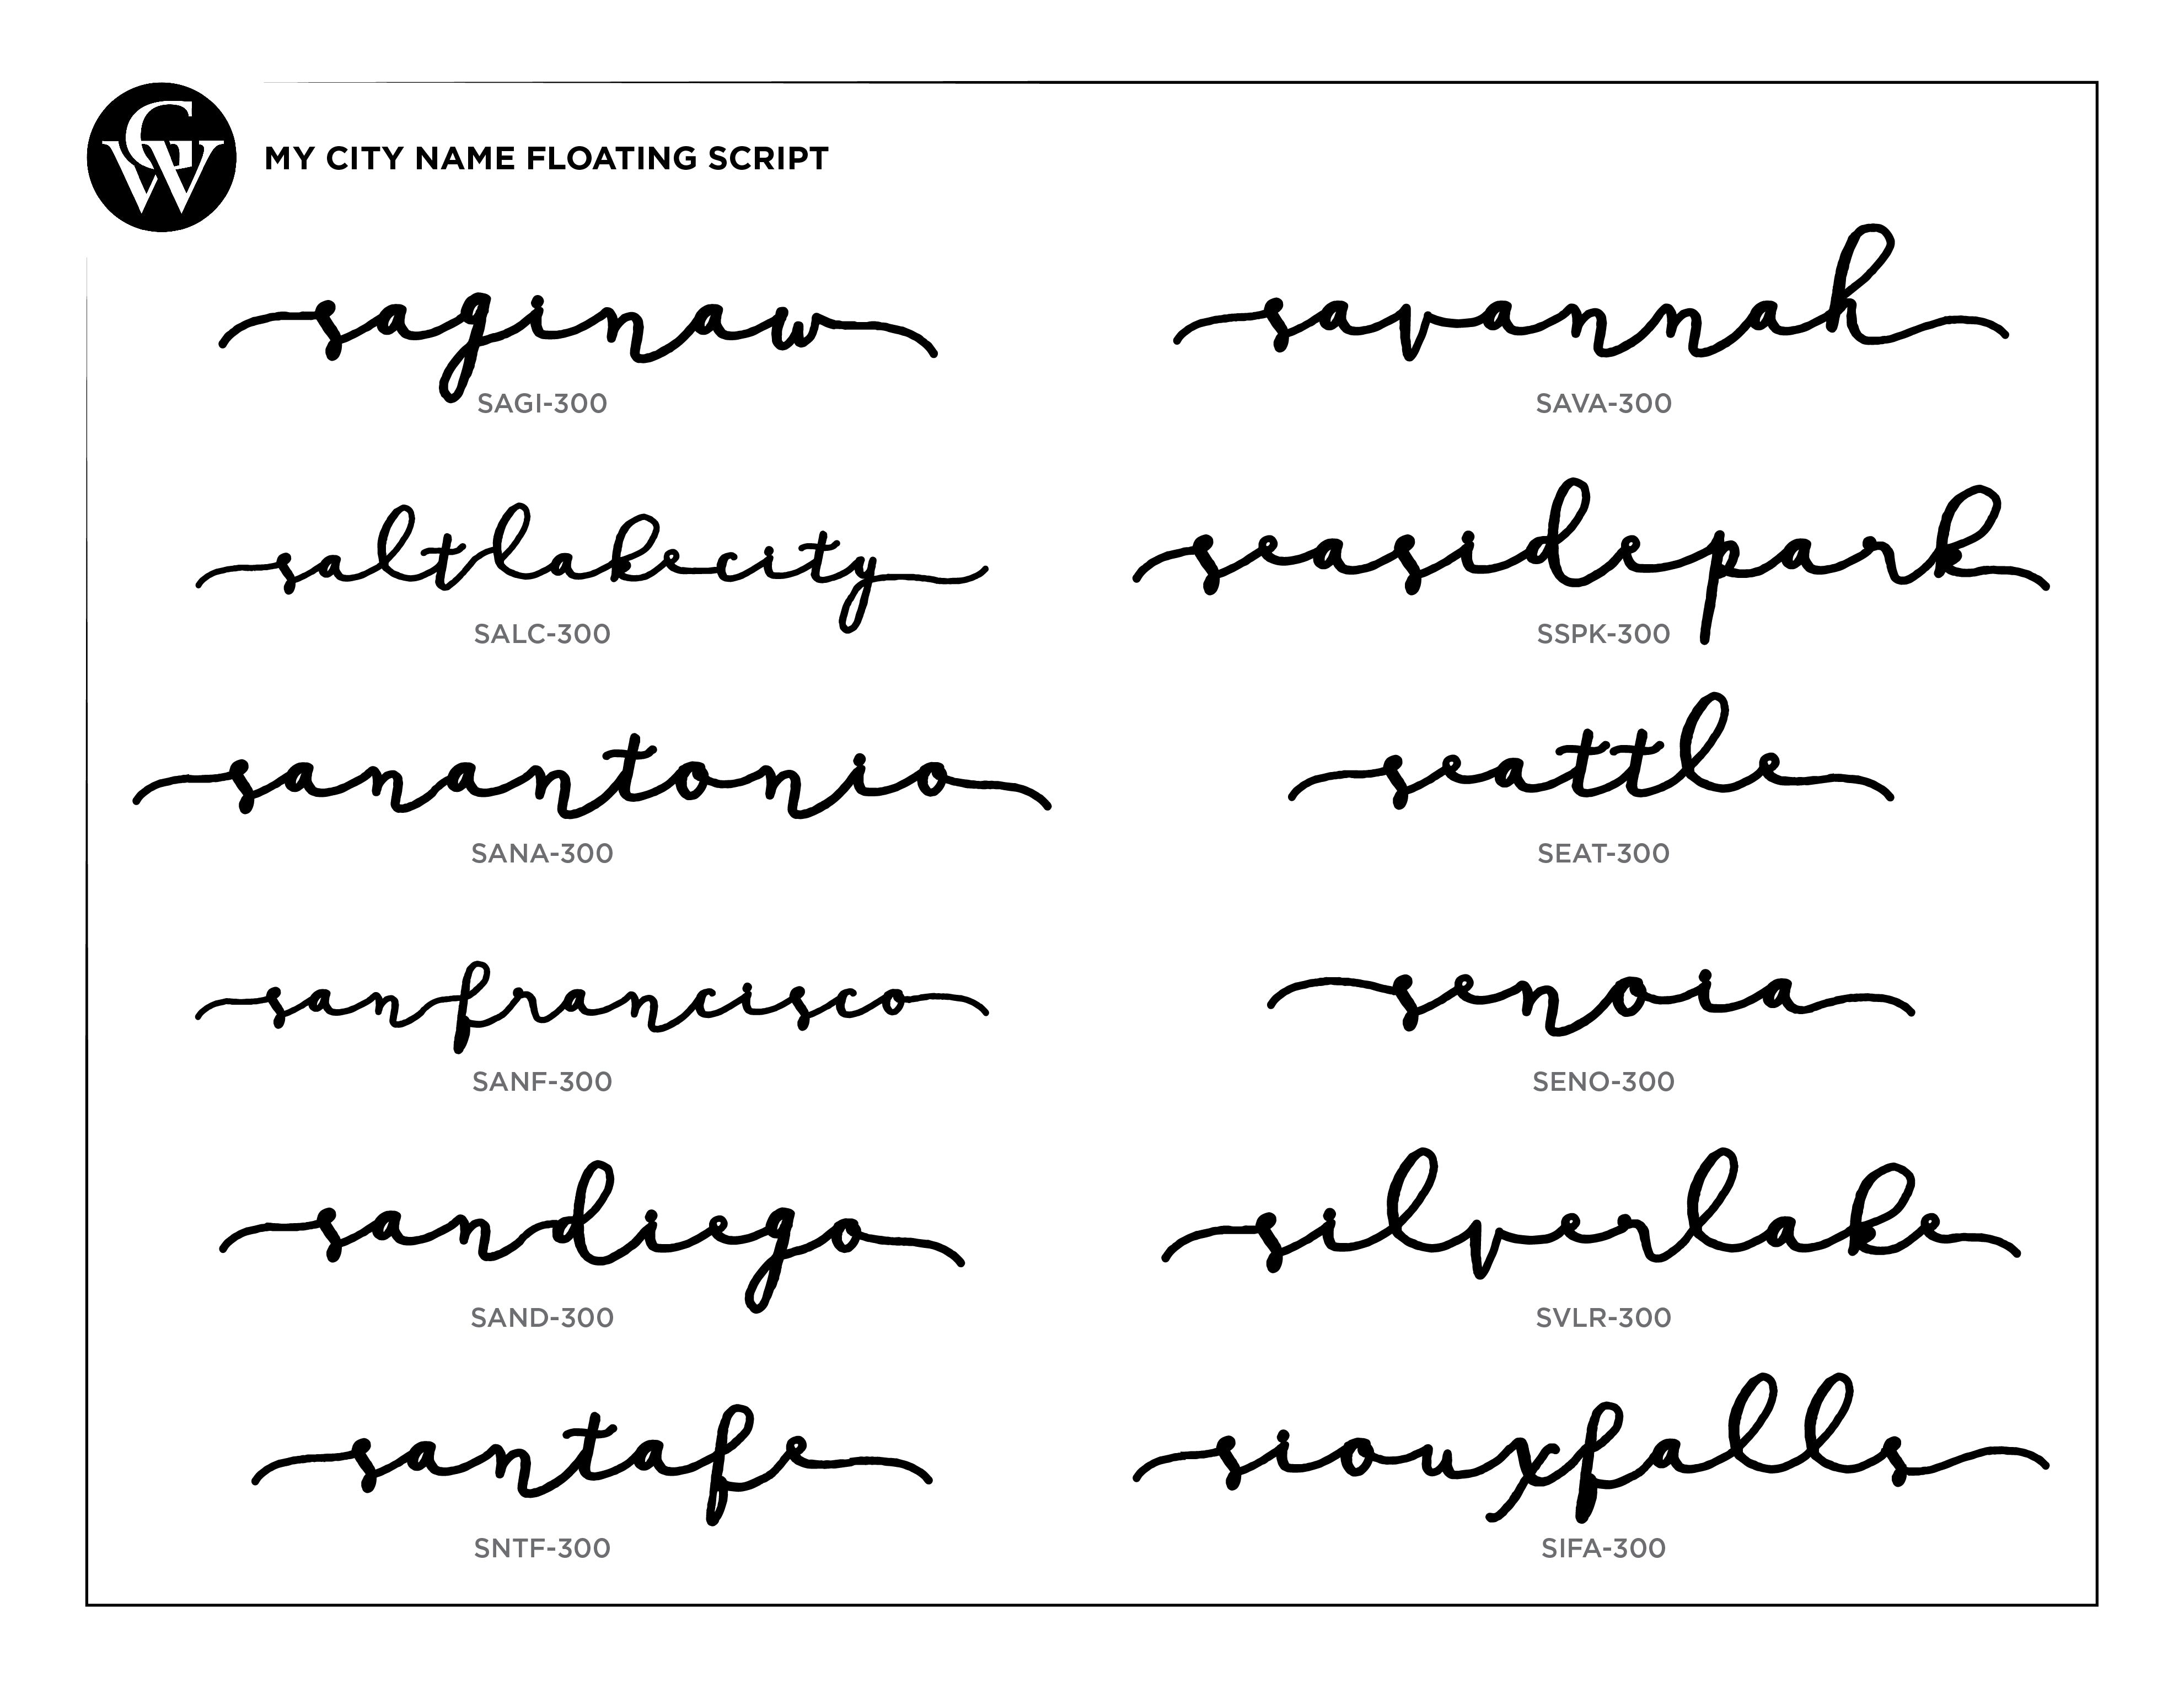 CW
MY CITY NAME FLOATING SCRIPT
saginaw
SAGI-300
savannah
SAVA-300
saltlakecity
SALC-300
seasidepark
SSPK-300
sanantonio
SANA-300
seattle
SEAT-300
sanfrancisco
SANF-300
senoia
SENO-300
sandiego
SAND-300
silverlake
SVLR-300
santafe
SNTF-300
siouxfalls
SIFA-300